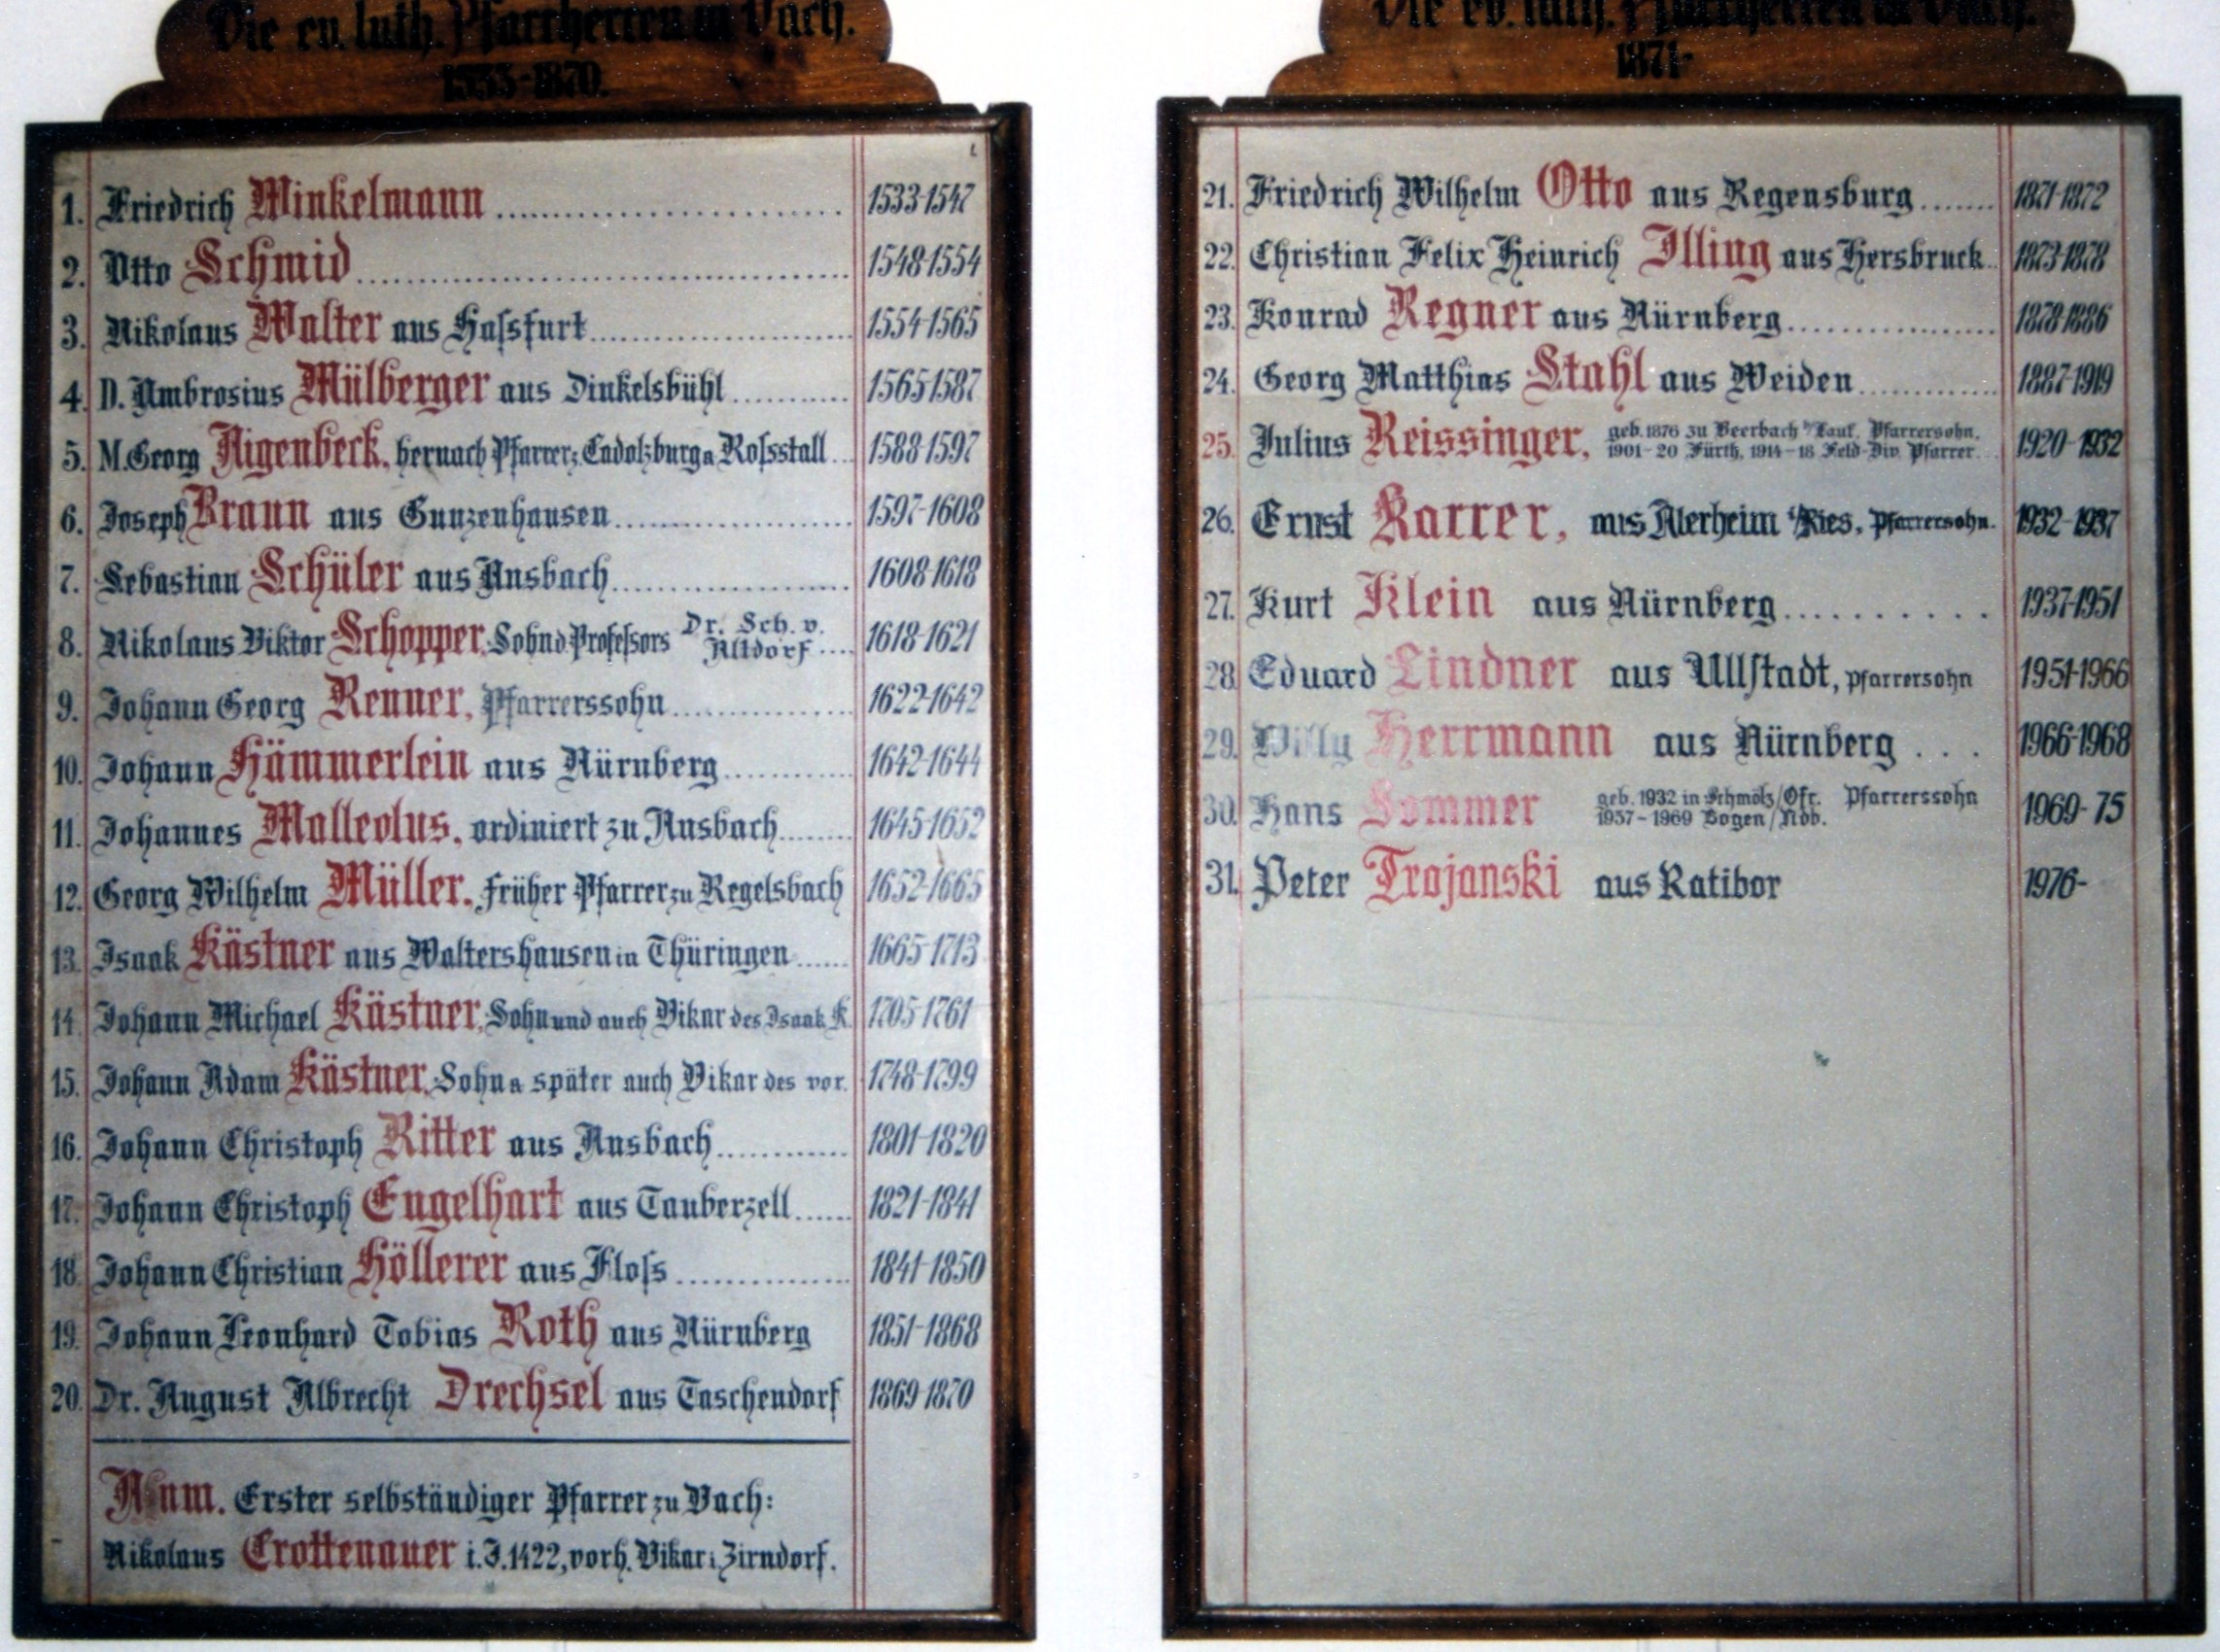 Die ev. luth. Pfarrherren in Vach.
1533-1870.
1. Friedrich Winkelmann 1533-1547
2. Otto Schmid 1548-1554
3. Nikolaus Walter aus Haſsfurt 1554-1565
4. D. Ambrosius Mülberger aus Dinkelsbühl 1565-1587
5. M. Georg Aigenbeck, hernach Pfarrer z. Cadolzburg u. Roſsstall 1588-1597
6. Joseph Braun aus Gunzenhausen 1597-1608
7. Sebastian Schüler aus Ansbach 1608-1618
8. Nikolaus Viktor Schopper, Sohn d. Profeſsors Dr. Sch. v. Altdorf 1618-1621
9. Johann Georg Renner, Pfarrerssohn 1622-1642
10. Johann Hämmerlein aus Nürnberg 1642-1644
11. Johannes Malleolus, ordiniert zu Ansbach 1645-1652
12. Georg Wilhelm Müller, früher Pfarrer zu Regelsbach 1652-1665
13. Isaak Kästner aus Waltershausen in Thüringen 1665-1713
14. Johann Michael Kästner, Sohn und auch Vikar des Isaak K. 1705-1761
15. Johann Adam Kästner, Sohn u. später auch Vikar des vor. 1748-1799
16. Johann Christoph Ritter aus Ansbach 1801-1820
17. Johann Christoph Engelhart aus Tauberzell 1821-1841
18. Johann Christian Höllerer aus Floſs 1841-1850
19. Johann Leonhard Tobias Roth aus Nürnberg 1851-1868
20. Dr. August Albrecht Drechsel aus Taschendorf 1869-1870
Anm. Erster selbständiger Pfarrer zu Vach:
Nikolaus Crottenauer i. J. 1422, vorh. Vikar i. Zirndorf.
Die ev. luth. Pfarrherren in Vach.
1871-
21. Friedrich Wilhelm Otto aus Regensburg 1871-1872
22. Christian Felix Heinrich Illing aus Hersbruck 1873-1878
23. Konrad Regner aus Nürnberg 1878-1886
24. Georg Matthias Stahl aus Weiden 1887-1919
25. Julius Reissinger, geb. 1876 zu Beerbach b/Lauf, Pfarrersohn. 1920-1932
1901-20 Fürth, 1914-18 Feld-Div. Pfarrer
26. Ernst Karrer, aus Alerheim i/Ries, Pfarrersohn. 1932-1937
27. Kurt Klein aus Nürnberg 1937-1951
28. Eduard Lindner aus Ullſtadt, Pfarrersohn 1951-1966
29. Willy Herrmann aus Nürnberg 1966-1968
30. Hans Sommer geb. 1932 in Schmölz/Ofr. Pfarrerssohn 1969-75
1957-1969 Bogen/Ndb.
31. Peter Trojanski aus Ratibor 1976-